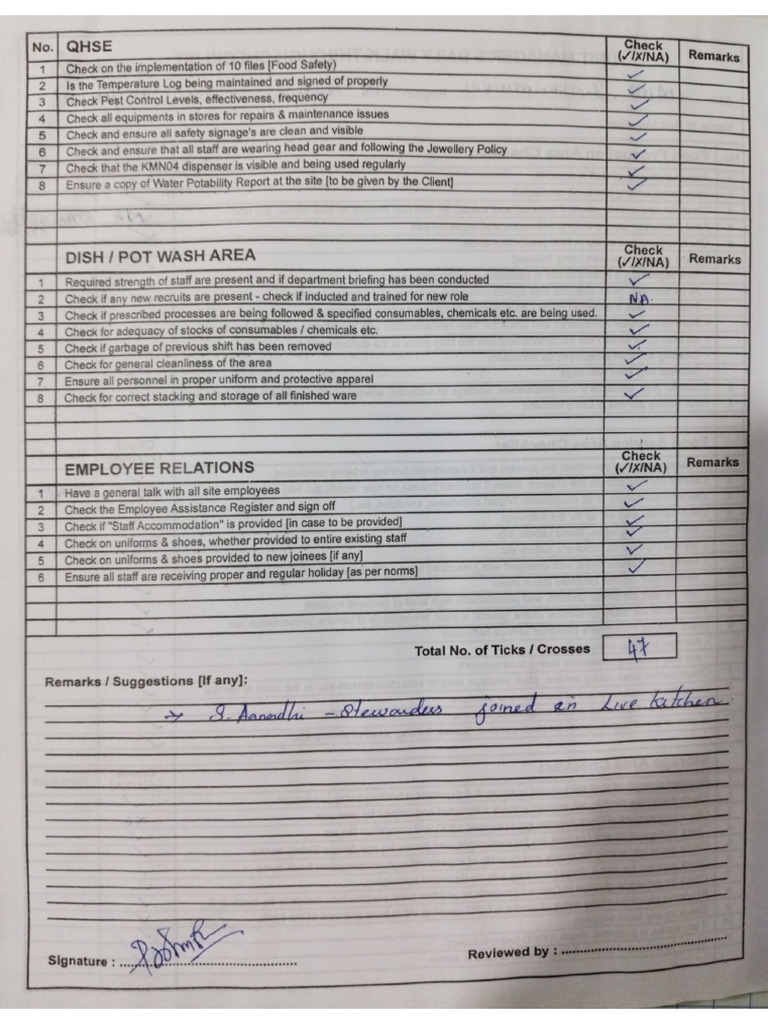 No. QHSE Check (✓/X/NA) Remarks
1 Check on the implementation of 10 files [Food Safety) ✓
2 Is the Temperature Log being maintained and signed of properly ✓
3 Check Pest Control Levels, effectiveness, frequency ✓
4 Check all equipments in stores for repairs & maintenance issues ✓
5 Check and ensure all safety signage's are clean and visible ✓
6 Check and ensure that all staff are wearing head gear and following the Jewellery Policy ✓
7 Check that the KMN04 dispenser is visible and being used regularly ✓
8 Ensure a copy of Water Potability Report at the site [to be given by the Client] ✓
DISH / POT WASH AREA Check (✓/X/NA) Remarks
1 Required strength of staff are present and if department briefing has been conducted ✓
2 Check if any new recruits are present - check if inducted and trained for new role NA.
3 Check if prescribed processes are being followed & specified consumables, chemicals etc. are being used. ✓
4 Check for adequacy of stocks of consumables / chemicals etc. ✓
5 Check if garbage of previous shift has been removed ✓
6 Check for general cleanliness of the area ✓
7 Ensure all personnel in proper uniform and protective apparel ✓
8 Check for correct stacking and storage of all finished ware ✓
EMPLOYEE RELATIONS Check (✓/X/NA) Remarks
1 Have a general talk with all site employees ✓
2 Check the Employee Assistance Register and sign off ✓
3 Check if "Staff Accommodation" is provided [in case to be provided] ✓
4 Check on uniforms & shoes, whether provided to entire existing staff ✓
5 Check on uniforms & shoes provided to new joinees [if any] ✓
6 Ensure all staff are receiving proper and regular holiday [as per norms] ✓
Total No. of Ticks / Crosses 47
Remarks / Suggestions [If any]:
→ S. Aanandhi - Stewardess joined in Live Kitchen
Signature :
Reviewed by :